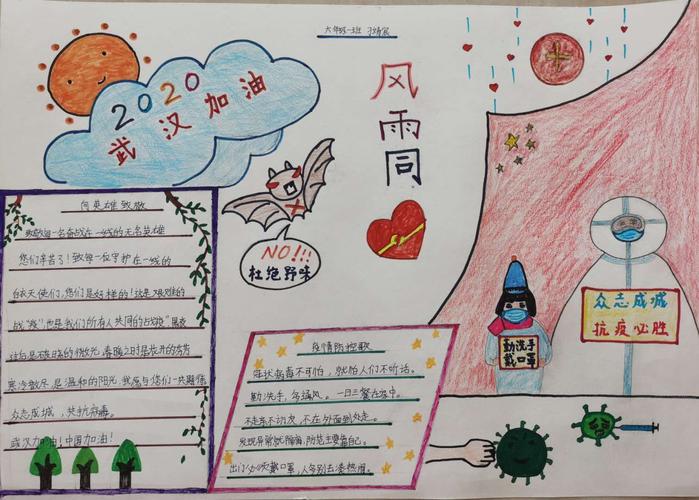 六年级一班
2020
武汉加油
风雨同
向英雄致敬
致敬每一名奋战在一线的无名英雄
您们辛苦了!致每一位守护在一线的
白衣天使们,您们是好样的!这是艰难的
战"疫"也是我们所有人共同的战疫"黑夜
过后是不夜的极光,春暖之时是花开的芳
寒冷散尽是温和的阳光,我愿与您们一共期
众志成城,共抗病毒。
武汉加油!中国加油!
NO!!!
杜绝野味
疫情防控歌
冠状病毒不可怕,就怕人们不听话。
勤洗手,多通风。一日三餐在家中。
不走亲不访友,不在外面到处走。
发现异常就隔离,防范主要靠自己。
出门必须戴口罩,人多别去凑热闹。
勤洗手
戴口罩
众志成城
抗疫必胜